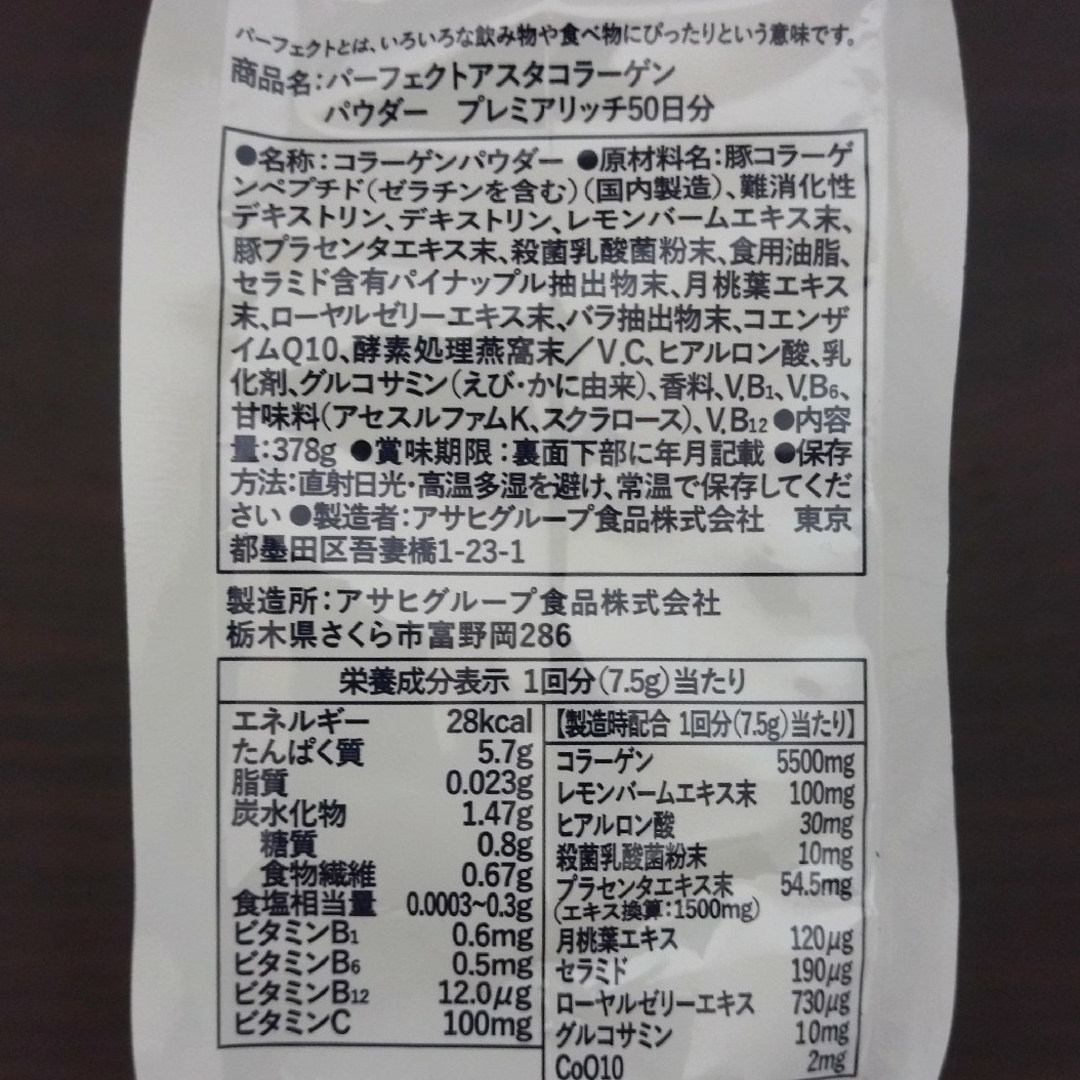 パーフェクトとは、いろいろな飲み物や食べ物にぴったりという意味です。
商品名:パーフェクトアスタコラーゲン
パウダー　プレミアリッチ50日分
●名称:コラーゲンパウダー ●原材料名:豚コラーゲ
ンペプチド(ゼラチンを含む)(国内製造)、難消化性
デキストリン、デキストリン、レモンバームエキス末、
豚プラセンタエキス末、殺菌乳酸菌粉末、食用油脂、
セラミド含有パイナップル抽出物末、月桃葉エキス
末、ローヤルゼリーエキス末、バラ抽出物末、コエンザ
イムQ10、酵素処理燕窩末/V.C、ヒアルロン酸、乳
化剤、グルコサミン(えび・かに由来)、香料、V.B1、V.B6、
甘味料(アセスルファムK、スクラロース)、V.B12 ●内容
量:378g ●賞味期限:裏面下部に年月記載 ●保存
方法:直射日光・高温多湿を避け、常温で保存してくだ
さい ●製造者:アサヒグループ食品株式会社　東京
都墨田区吾妻橋1-23-1
製造所:アサヒグループ食品株式会社
栃木県さくら市富野岡286
栄養成分表示 1回分(7.5g)当たり
エネルギー 28kcal
たんぱく質 5.7g
脂質 0.023g
炭水化物 1.47g
糖質 0.8g
食物繊維 0.67g
食塩相当量 0.0003~0.3g
ビタミンB1 0.6mg
ビタミンB6 0.5mg
ビタミンB12 12.0μg
ビタミンC 100mg
【製造時配合 1回分(7.5g)当たり】
コラーゲン 5500mg
レモンバームエキス末 100mg
ヒアルロン酸 30mg
殺菌乳酸菌粉末 10mg
プラセンタエキス末 54.5mg
(エキス換算:1500mg)
月桃葉エキス 120μg
セラミド 190μg
ローヤルゼリーエキス 730μg
グルコサミン 10mg
CoQ10 2mg